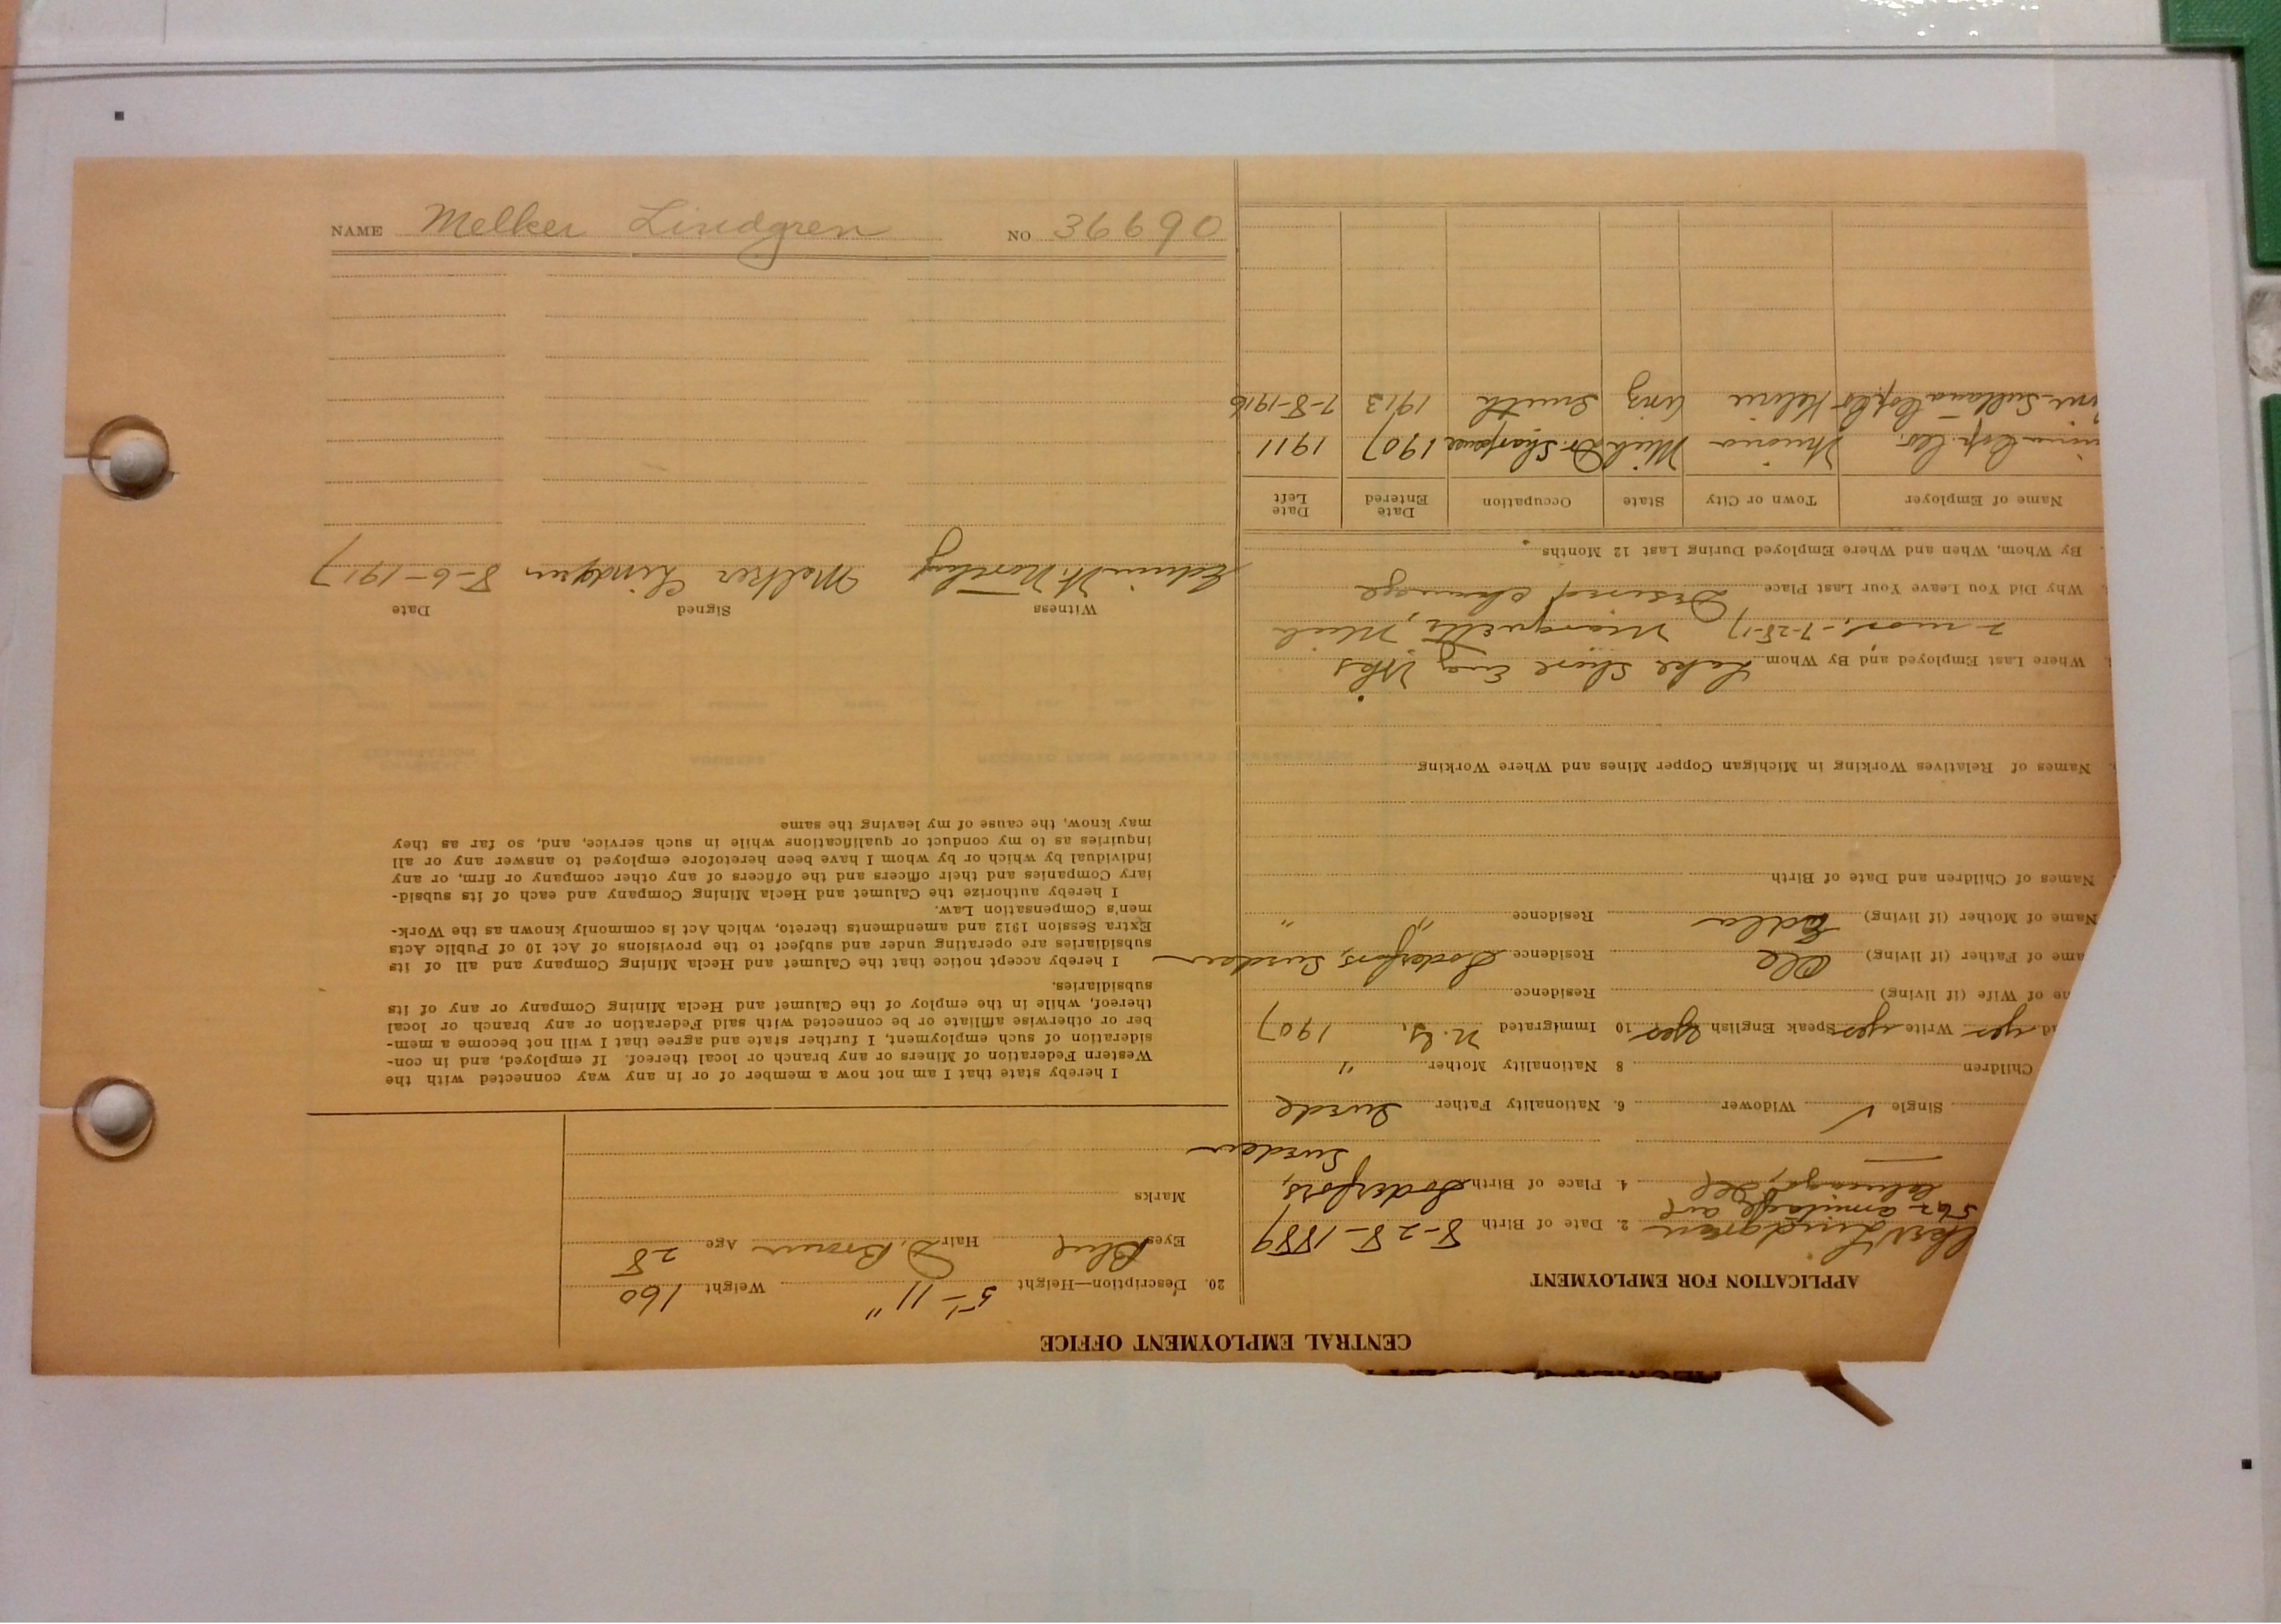 CENTRAL EMPLOYMENT OFFICE
APPLICATION FOR EMPLOYMENT
Lindgren 2. Date of Birth 8-28-1889
512 armitage ave
Ill 4. Place of Birth Soderfors,
Sweden
Single √ Widower 6. Nationality Father Swede
Children 8 Nationality Mother "
yes Write yes Speak English yes 10 Immigrated N.Y. 1907
of Wife (if living) Residence
ame of Father (if living) Ole Residence Soderfors, Sweden
Name of Mother (if living) Edla Residence " "
Names of Children and Date of Birth
Names of Relatives Working in Michigan Copper Mines and Where Working
Where Last Employed and By Whom Lake Shore Eng Wks
2 mos. -7-28-17 Marquette, Mich
Why Did You Leave Your Last Place Desired change
By Whom, When and Where Employed During Last 12 Months
Name of Employer Town or City State Occupation Date Entered Date Left
Cop. Co. Mich 1907 1911
Cop Co Kelvin Ariz Smith 1913 7-8-1916
20. Description—Height 5'-11" Weight 160
Eyes Blue Hair D. Brown Age 28
Marks
I hereby state that I am not now a member of or in any way connected with the
Western Federation of Miners or any branch or local thereof. If employed, and in con-
sideration of such employment, I further state and agree that I will not become a mem-
ber or otherwise affiliate or be connected with said Federation or any branch or local
thereof, while in the employ of the Calumet and Hecla Mining Company or any of its
subsidiaries.
I hereby accept notice that the Calumet and Hecla Mining Company and all of its
subsidiaries are operating under and subject to the provisions of Act 10 of Public Acts
Extra Session 1912 and amendments thereto, which Act is commonly known as the Work-
men's Compensation Law.
I hereby authorize the Calumet and Hecla Mining Company and each of its subsid-
iary Companies and their officers and the officers of any other company or firm, or any
individual by which or by whom I have been heretofore employed to answer any or all
inquiries as to my conduct or qualifications while in such service, and, so far as they
may know, the cause of my leaving the same
Witness Signed Date
Melker Lindgren 8-6-1917
NAME Melker Lindgren NO 36690